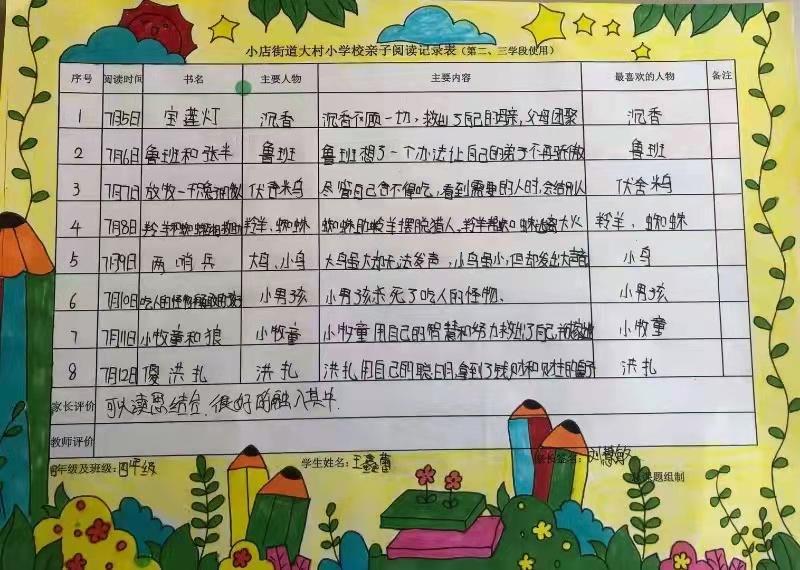 小店街道大村小学校亲子阅读记录表（第二、三学段使用）
序号 阅读时间 书名 主要人物 主要内容 最喜欢的人物 备注
1 7月5日 宝莲灯 沉香 沉香不顾一切，救出了自己的母亲，父母团聚 沉香
2 7月6日 鲁班和张半 鲁班 鲁班想了一个办法让自己的弟子不再骄傲 鲁班
3 7月7日 放牧 尽管自己舍不得吃，看到需要的人时，会给别人
4 7月8日 羚羊、蜘蛛 蜘蛛助羚羊摆脱猎人，羚羊帮 蜘蛛逃离大火 羚羊、蜘蛛
5 7月9日 两哨兵 大鸟、小鸟 大鸟虽大却无法发声，小鸟虽小，但却发出大声音 小鸟
6 7月10日 吃人的怪物 小男孩 小男孩杀死了吃人的怪物、 小男孩
7 7月11日 小牧童和狼 小牧童 小牧童用自己的智慧和努力救出了自己 小牧童
8 7月12日 傻洪扎 洪扎 洪扎用自己的聪明，拿到了钱财和 洪扎
家长评价 可以读思结合，很好的融入其中.
教师评价
年级及班级：四年级 学生姓名：王 家长签名：刘慧敏
课题组制